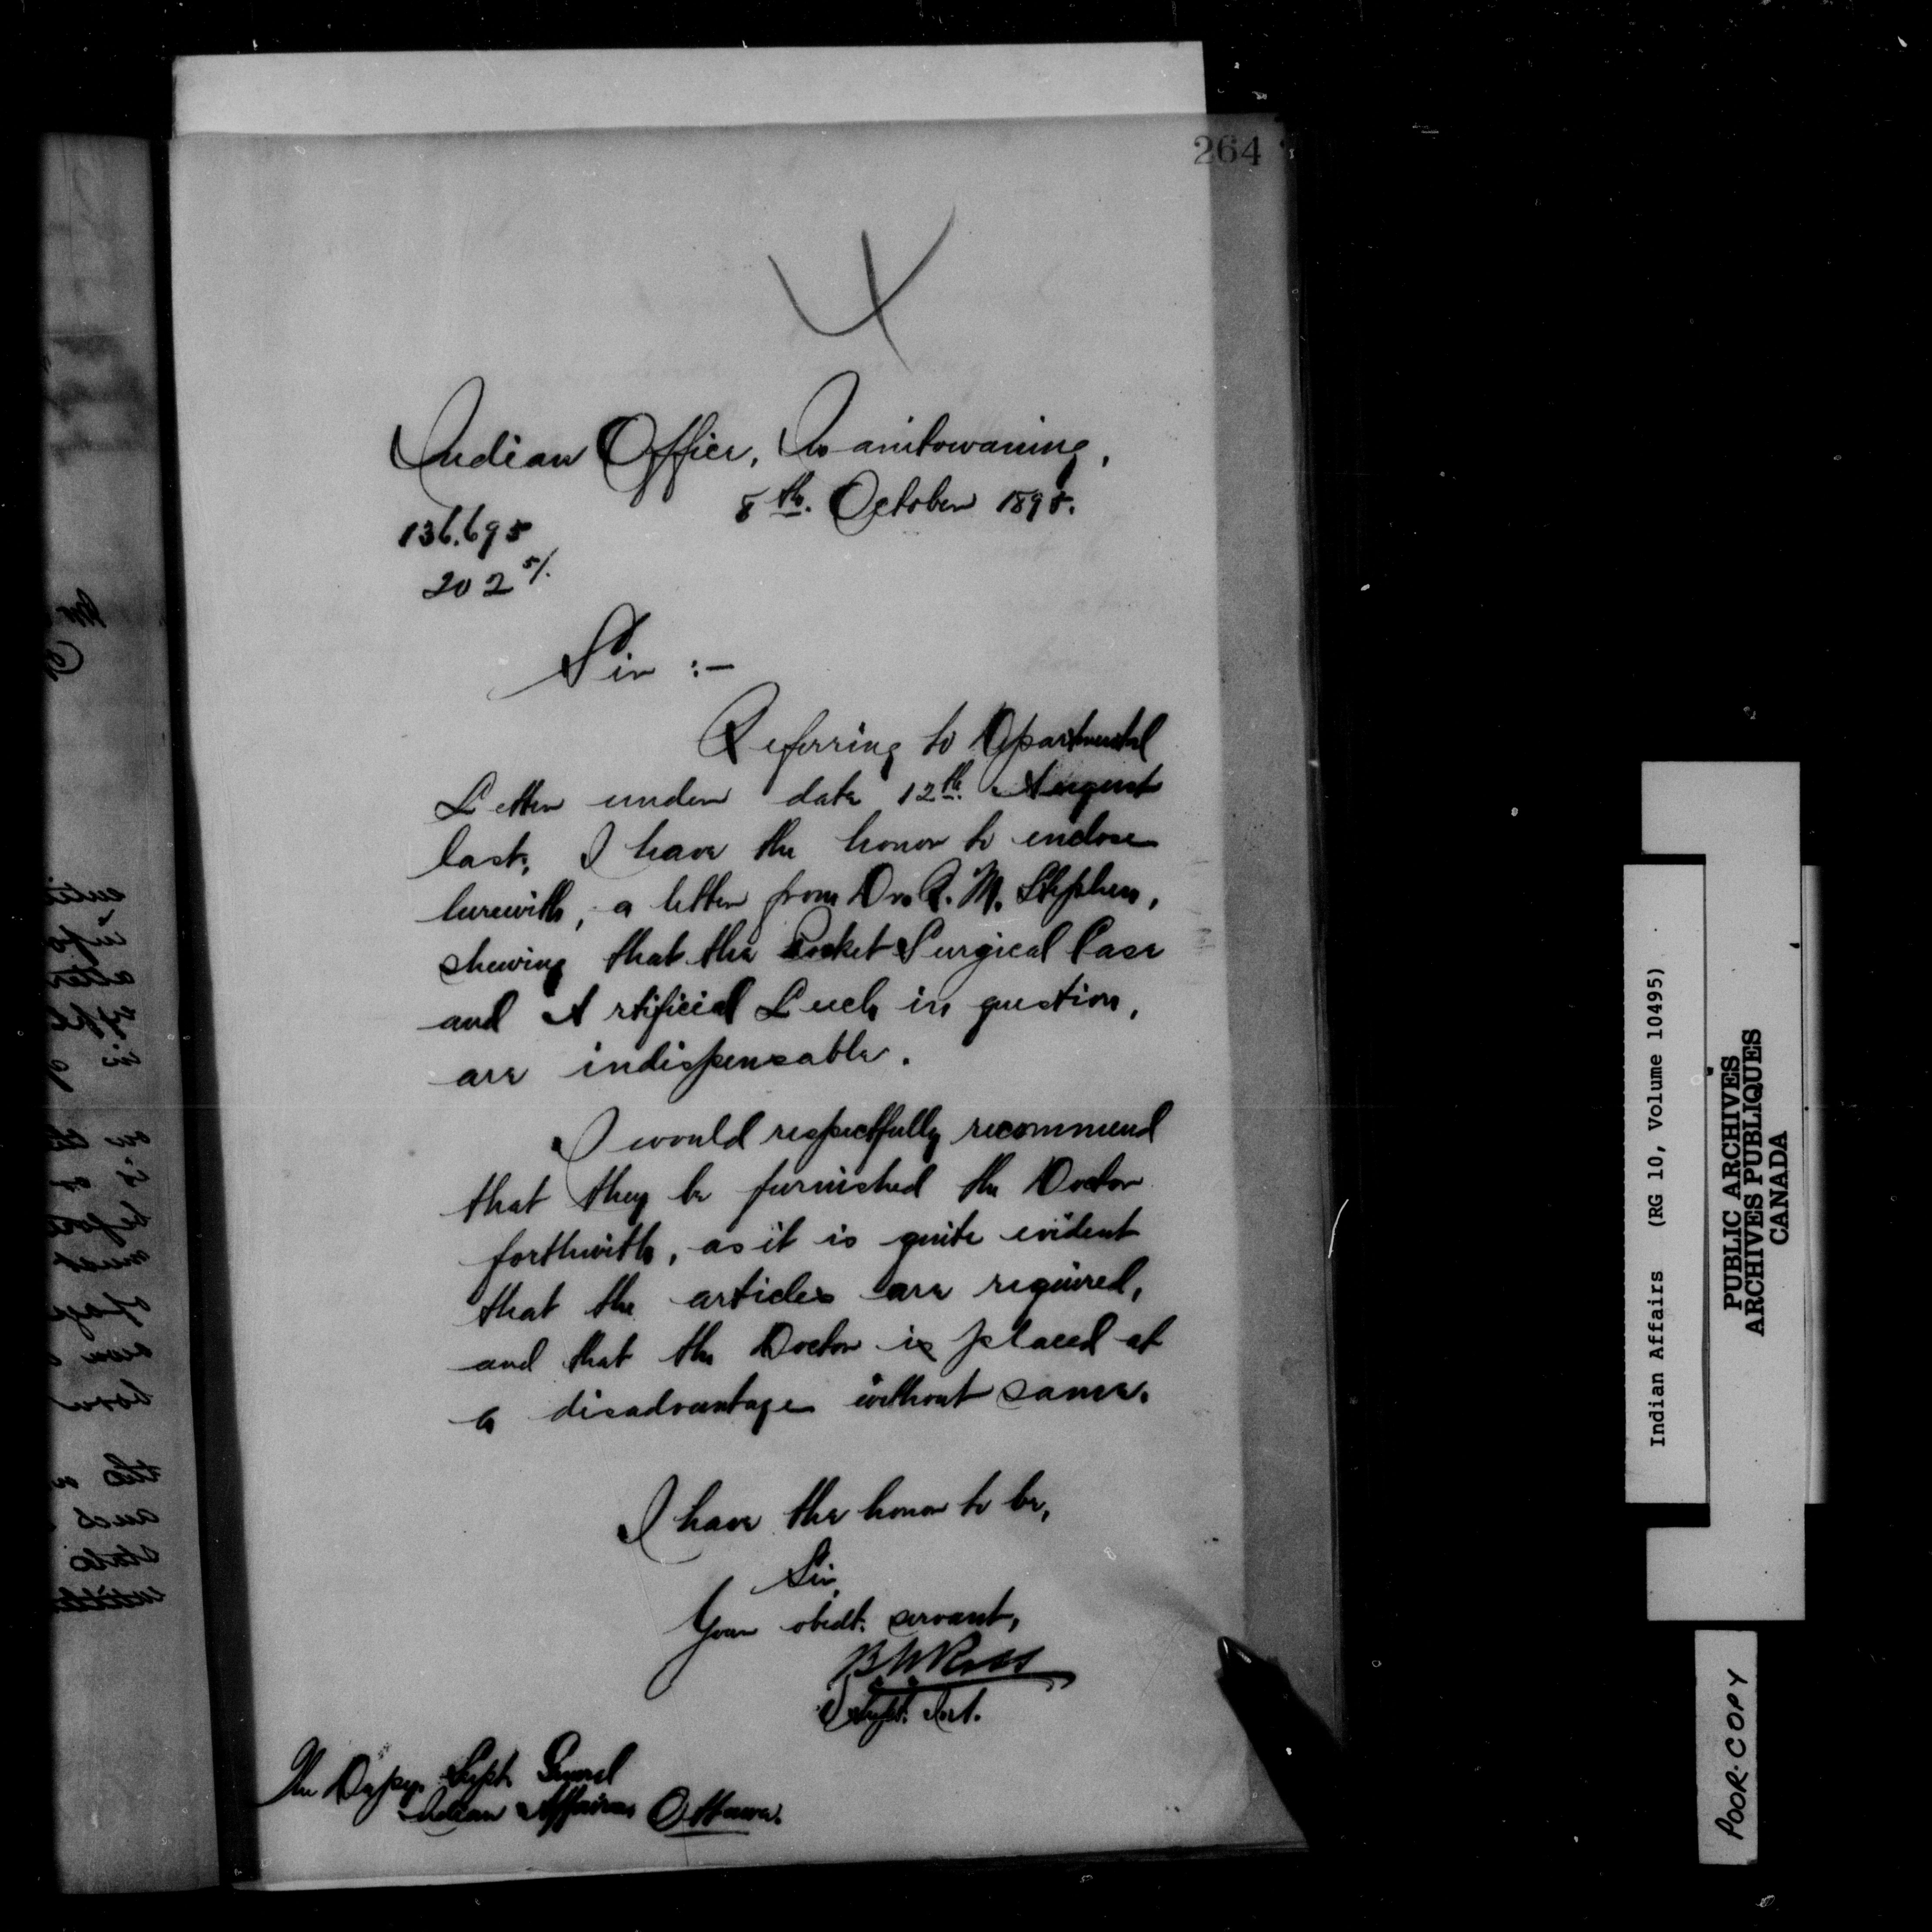 264
Indian Office, Manitowaning,
8th. October 1895.
136.695
202 5/.
Sir :-
Referring to Departmental
Letter under date 12th. August
last, I have the honor to enclose
herewith, a letter from Dr. R. M. Stephen,
shewing that the Pocket Surgical Case
and Artificial Leech in question,
are indispensable.
I would respectfully recommend
that they be furnished the Doctor
forthwith, as it is quite evident
that the articles are required,
and that the Doctor is placed at
a disadvantage without same.
I have the honor to be,
Sir,
Your obedt. servant,
B W Ross
Supt.
The Depy. Supt. General
Indian Affairs Ottawa.
Indian Affairs (RG 10, Volume 10495)
PUBLIC ARCHIVES
ARCHIVES PUBLIQUES
CANADA
POOR·COPY